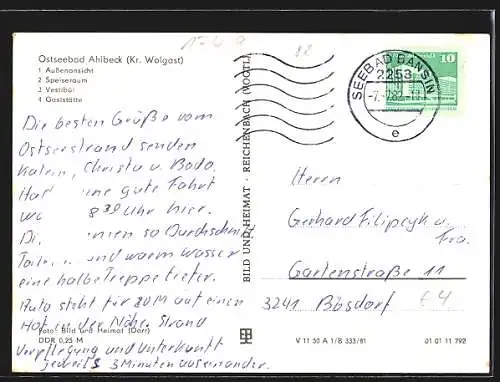 Ostseebad Ahlbeck (Kr. Wolgast)
1 Außenansicht
2 Speiseraum
3 Vestibül
4 Gaststätte
82
Die besten Grüße vom
Ostseestrand senden
Katrin, Christa u. Bodo.
gute Fahrt
8 30 Uhr hier.
so Durchschnitt
und warm Wasser
eine halbe Treppe tiefer.
Auto steht für 20 M auf einen
Hof in der Nähe. Strand
Verpflegung und Unterkunft
jeweils 3 Minuten auseinander.
Foto: Bild und Heimat (Darr)
DDR 0,25 M
BILD UND HEIMAT · REICHENBACH (VOGTL)
V 11 50 A 1/B 333/81
01 01 11 792
SEEBAD BANSIN
2253
-7.-7.82
e
10
Herrn
Gerhard Filipcyk u.
Fra.
Gartenstraße 11
3241 Bösdorf